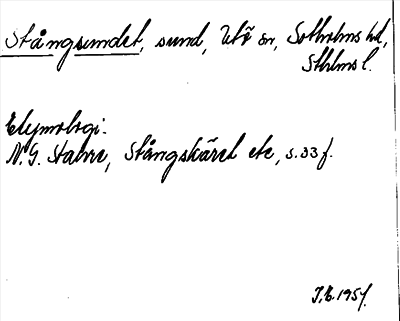 Stångsundet, sund, Utö sn, Sotholms hd,
Sthlms l.
Etymologi:
N. G. Stahre, Stångskäret etc, s. 33 f.
J.E. 1957.